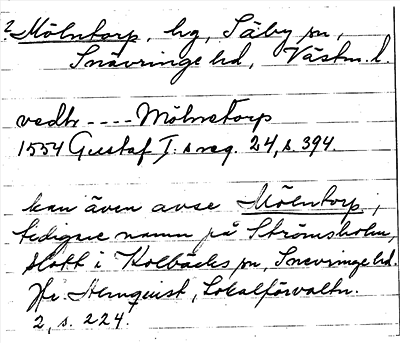 ? Mölntorp, hg, Säby sn,
Snävringe hd, Västm. l.
vedhr ---- Mölnetorp
1554 Gustaf I:s reg. 24, s. 394.
kan även avse Mölntorp,
tidigare namn på Strömsholm,
slott i Kolbäcks sn, Snevringe hd.
Jfr Almquist, Lokalförvaltn.
2, s. 224.